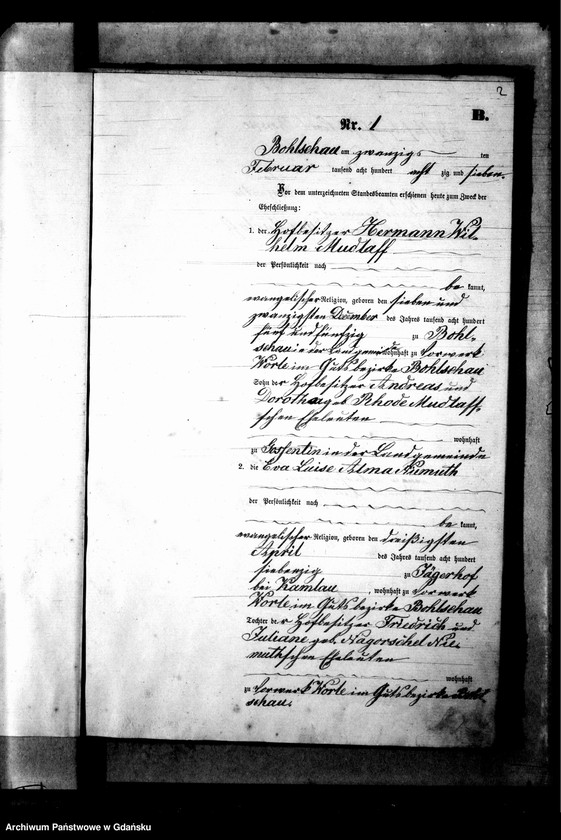 2
B.
Nr. 1
Bohlschau am zwanzigsten
Februar tausend acht hundert acht zig und sieben.
Vor dem unterzeichneten Standesbeamten erschienen heute zum Zweck der
Eheschließung:
1. der Hofbesitzer Hermann Wil-
helm Mudlaff
der Persönlichkeit nach
be kannt,
evangelischer Religion, geboren den sieben und
zwanzigsten December des Jahres tausend acht hundert
fünf und fünfzig zu Bohl-
schau in der Landgemeinde wohnhaft zu Vorwerk
Worle im Gutsbezirke Bohlschau
Sohn der Hofbesitzer Andreas und
Dorothea geb. Rhode Mudlaff-
schen Eheleuten
wohnhaft
zu Gossentin in der Landgemeinde
2. die Eva Luise Alma Niemuth
der Persönlichkeit nach
be kannt,
evangelischer Religion, geboren den dreißigsten
April des Jahres tausend acht hundert
siebenzig zu Jägerhof
bei Kamlau, wohnhaft zu Vorwerk
Worle im Gutsbezirke Bohlschau
Tochter der Hofbesitzer Friedrich und
Juliane geb. Nagorschel Nie-
muthschen Eheleuten
wohnhaft
zu Vorwerk Worle im Gutsbezirke Bohl
schau.
Archiwum Państwowe w Gdańsku